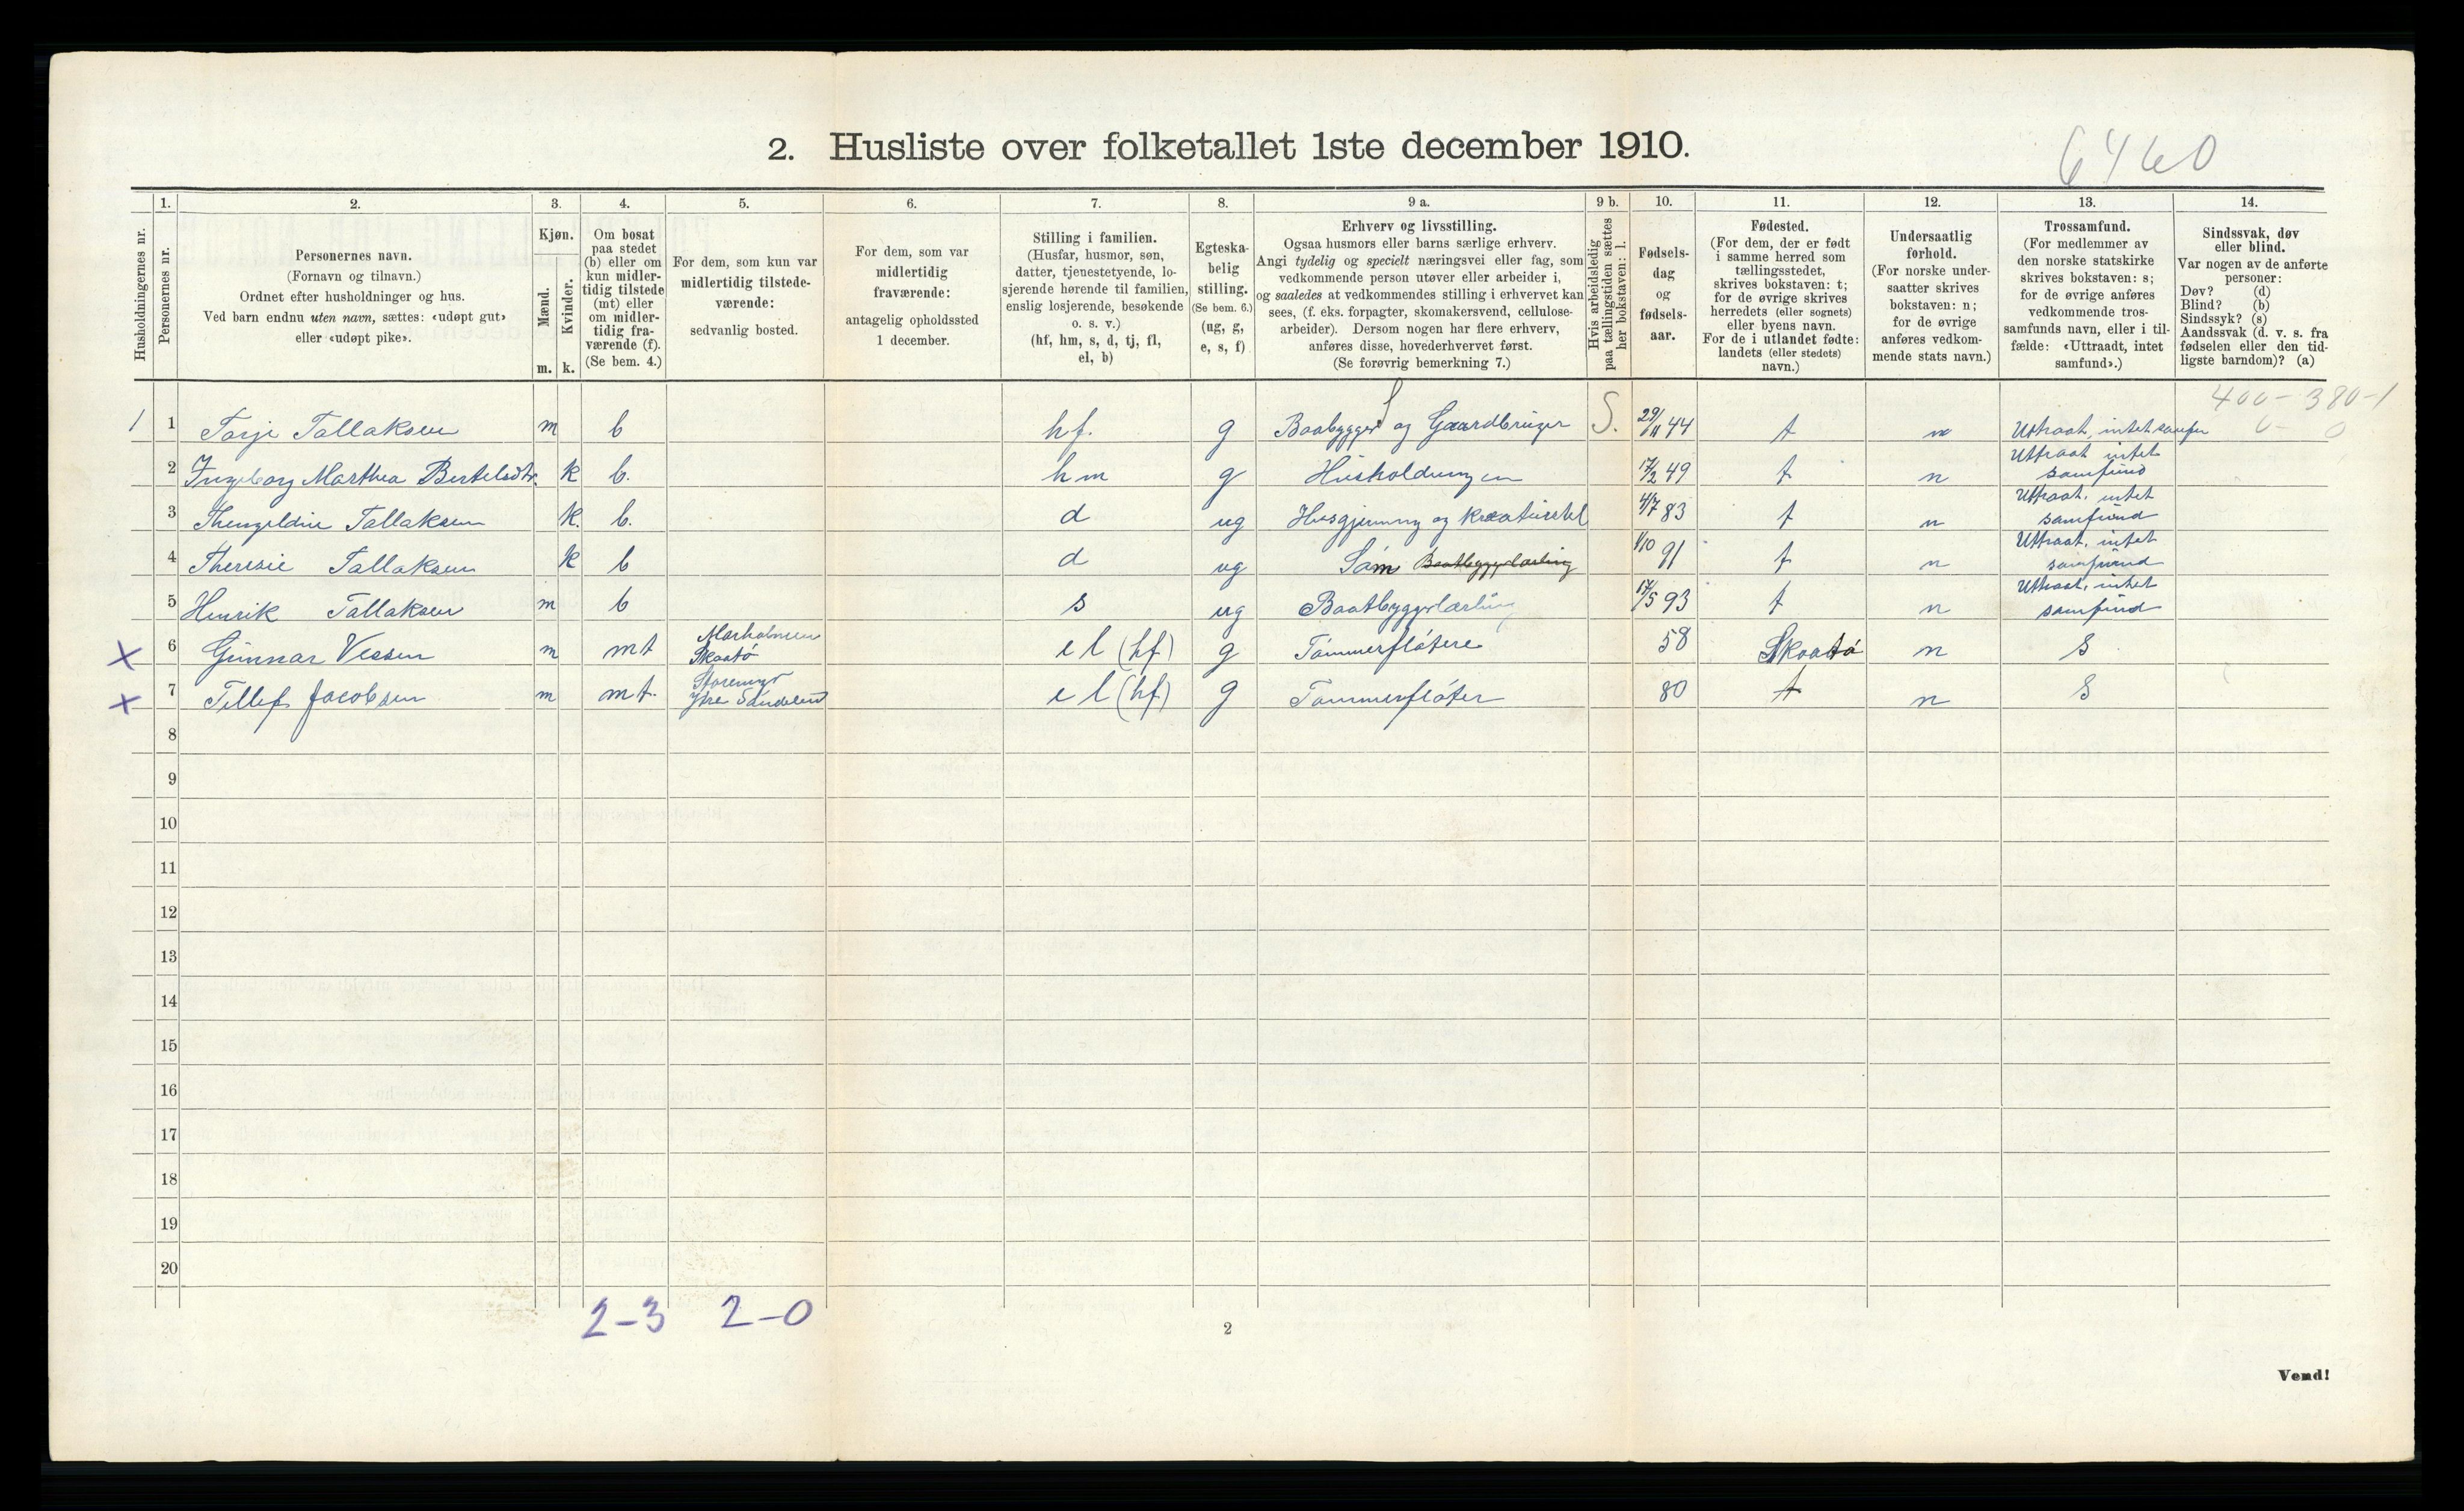 2. Husliste over folketallet 1ste december 1910.
6460
Husholdningernes nr.
1.
Personernes nr.
2.
Personernes navn.
(Fornavn og tilnavn.)
Ordnet efter husholdninger og hus.
Ved barn endnu uten navn, sættes: «udøpt gut»
eller «udøpt pike».
3.
Kjøn.
Mænd.
Kvinder.
m. k.
4.
Om bosat
paa stedet
(b) eller om
kun midler-
tidig tilstede
(mt) eller
om midler-
tidig fra-
værende (f).
(Se bem. 4.)
5.
For dem, som kun var
midlertidig tilstede-
værende:
sedvanlig bosted.
6.
For dem, som var
midlertidig
fraværende:
antagelig opholdssted
1 december.
7.
Stilling i familien.
(Husfar, husmor, søn,
datter, tjenestetyende, lo-
sjerende hørende til familien,
enslig losjerende, besøkende
o. s. v.)
(hf, hm, s, d, tj, fl,
el, b)
8.
Egteska-
belig
stilling.
(Se bem. 6.)
(ug, g,
e, s, f)
9 a.
Erhverv og livsstilling.
Ogsaa husmors eller barns særlige erhverv.
Angi tydelig og specielt næringsvei eller fag, som
vedkommende person utøver eller arbeider i,
og saaledes at vedkommendes stilling i erhvervet kan
sees, (f. eks. forpagter, skomakersvend, cellulose-
arbeider). Dersom nogen har flere erhverv,
anføres disse, hovederhvervet først.
(Se forøvrig bemerkning 7.)
9 b.
Hvis arbeidsledig
paa tællingstiden sættes
her bokstaven: l.
10.
Fødsels-
dag
og
fødsels-
aar.
11.
Fødested.
(For dem, der er født
i samme herred som
tællingsstedet,
skrives bokstaven: t;
for de øvrige skrives
herredets (eller sognets)
eller byens navn.
For de i utlandet fødte:
landets (eller stedets)
navn.)
12.
Undersaatlig
forhold.
(For norske under-
saatter skrives
bokstaven: n;
for de øvrige
anføres vedkom-
mende stats navn.)
13.
Trossamfund.
(For medlemmer av
den norske statskirke
skrives bokstaven: s;
for de øvrige anføres
vedkommende tros-
samfunds navn, eller i til-
fælde: «Uttraadt, intet
samfund».)
14.
Sindssvak, døv
eller blind.
Var nogen av de anførte
personer:
Døv? (d)
Blind? (b)
Sindssyk? (s)
Aandssvak (d. v. s. fra
fødselen eller den tid-
ligste barndom)? (a)
400-380-1
0- 0
1 1 Tarje Tallaksen m b hf. g Baabygger og Gaardbruger S. 29/11 44 t n Uttraat, intet samfun
2 Ingeborg Marthea Bertelsdtr. k b. hm g Husholdningen 17/2 49 t n Uttraat intet samfund
3 Thengeldine Tallaksen k. b. d ug Husgjerning og kreaturstel 4/7 83 t n Uttraat. intet samfund
4 Theresie Tallaksen k b d ug Søm Baatbyggerlærling 1/10 91 t n Uttraat. intet samfund
5 Henrik Tallaksen m b s ug Baatbyggerlærling 17/5 93 t n Uttraat, intet samfund
X 6 Gunnar Vessen m mt Marholmen Skaatø el (hf) g Tømmerfløtere 58 Skaatø n S
X 7 Tellef Jacobsen m mt. Storemyr Ytre Søndeled el (hf) g Tømmerfløter 80 t n S
8
9
10
11
12
13
14
15
16
17
18
19
20
2-3 2-0
2
Vend!